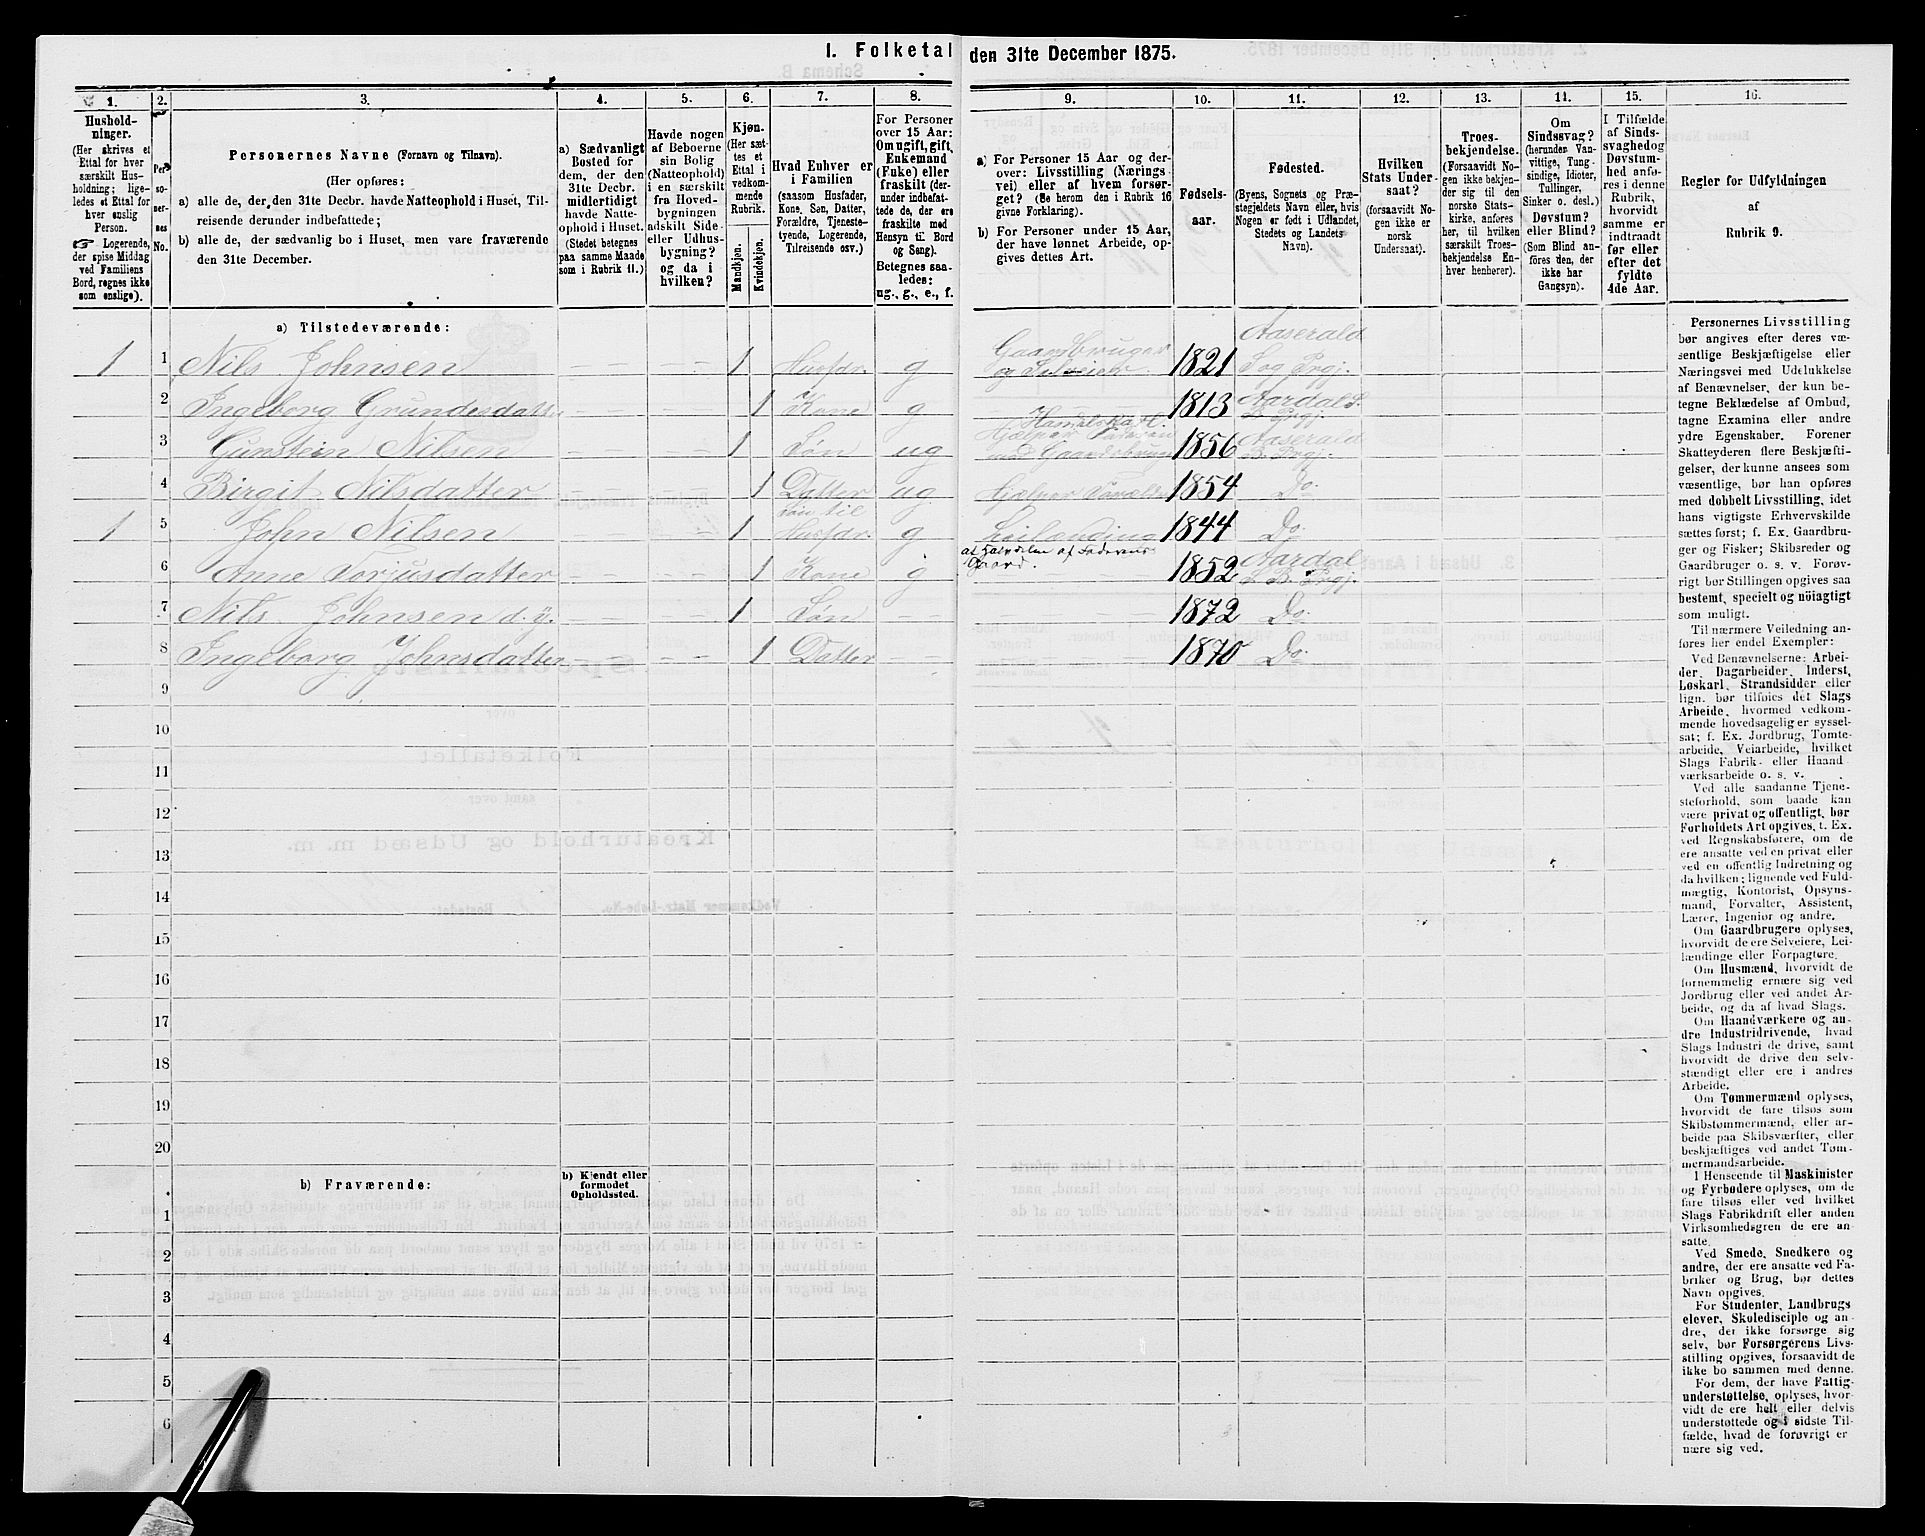 I. Folketal den 31te December 1875.
1. 2. 3. 4. 5. 6. 7. 8. 9. 10. 11. 12. 13. 14. 15. 16.
Hushold-
ninger.
(Her skrives et
Ettal for hver
særskilt Hus-
holdning; lige-
ledes et Ettal for
hver enslig
Person.
☞ Logerende,
der spise Middag
ved Familiens
Bord, regnes ikke
som enslige).
Per-
so-
ner-
nes
No.
Personernes Navne (Fornavn og Tilnavn).
(Her opføres:
a) alle de, der den 31te Decbr. havde Natteophold i Huset, Til-
reisende derunder indbefattede;
b) alle de, der sædvanlig bo i Huset, men vare fraværende
den 31te December.
a) Sædvanligt
Bosted for
dem, der den
31te Decbr.
midlertidigt
havde Natte-
ophold i Huset.
(Stedet betegnes
paa samme Maade
som i Rubrik 11.)
Havde nogen
af Beboerne
sin Bolig
(Natteophold)
i en særskilt
fra Hoved-
bygningen
adskilt Side-
eller Udhus-
bygning?
og da i
hvilken?
Kjøn.
(Her sæt-
tes et
Ettal i
vedkom-
mende
Rubrik.
Mandkjøn.
Kvindekjøn.
Hvad Enhver er
i Familien
(saasom Husfader,
Kone, Søn, Datter,
Forældre, Tjeneste-
tyende, Logerende,
Tilreisende osv.)
For Personer
over 15 Aar:
Om ugift, gift,
Enkemand
(Enke) eller
fraskilt (der-
under indbefat-
tede de, der ere
fraskilte med
Hensyn til Bord
og Seng).
Betegnes saa-
ledes:
ug., g., e., f.
a) For Personer 15 Aar og der-
over: Livsstilling (Nærings-
vei) eller af hvem forsør-
get? (Se herom den i Rubrik 16
givne Forklaring).
b) For Personer under 15 Aar,
der have lønnet Arbeide, op-
gives dettes Art.
Fødsels-
aar.
Fødested.
(Byens, Sognets og Præ-
stegjeldets Navn eller, hvis
Nogen er født i Udlandet,
Stedets og Landets
Navn).
Hvilken
Stats Under-
saat?
(forsaavidt No-
gen ikke er
norsk
Undersaat).
Troes-
bekjendelse.
(Forsaavidt No-
gen ikke bekjen-
der sig til den
norske Stats-
kirke, anføres
her, til hvilken
særskilt Troes-
bekjendelse En-
hver henhører).
Om
Sindssvag?
(herunder Van-
vittige, Tung-
sindige, Idioter,
Tullinger,
Sinker o. desl.)
Døvstum?
eller Blind?
(Som Blind an-
føres den, der
ikke har
Gangsyn).
I Tilfælde
af Sinds-
svaghed og
Døvstum-
hed anfø-
res i denne
Rubrik,
hvorvidt
samme er
indtraadt
før eller
efter det
fyldte
4de Aar.
Regler for Udfyldningen
af
Rubrik 9.
a) Tilstedeværende:
1 1 Nils Johnsen – – 1 Husfdr. g Gaardbruger og Selveier 1821 Aaserald S og Prgj.
2 Ingeborg Grundesdatter – – 1 Kone g 1813 Aardal S. B. Prgj.
3 Gunstein Nilsen – – 1 Søn ug Hjælper Faderen med Gaardsbruget 1856 Aaserald B. Prgj.
4 Birgit Nilsdatter – – 1 Datter ug Hjælper 1854 Do
1 5 John Nilsen – – 1 Søn til Husfdr. g Leilænding 1844 Do.
af Halvdelen af Faderens Gaard.
6 Anne Torjusdatter – – 1 Kone g 1852 Aardal S B. Prgj.
7 Nils Johnsen d. y. – – 1 Søn – 1872 Do.
8 Ingeborg Johnsdatter – – 1 Datter – 1870 Do.
9
10
11
12
13
14
15
16
17
18
19
20
b) Fraværende:
b) Kjendt eller
formodet
Opholdssted.
1
2
3
4
5
6
Personernes Livsstilling
bør angives efter deres væ-
sentlige Beskjæftigelse eller
Næringsvei med Udelukkelse
af Benævnelser, der kun be-
tegne Beklædelse af Ombud,
tagne Examina eller andre
ydre Egenskaber. Forener
Skatteyderen flere Beskjæfti-
gelser, der kunne ansees som
væsentlige, bør han opføres
med dobbelt Livsstilling, idet
hans vigtigste Erhvervskilde
sættes først; f. Ex. Gaardbru-
ger og Fisker; Skibsreder og
Gaardbruger o. s. v. Forøv-
rigt bør Stillingen opgives saa
bestemt, specielt og nöiagtigt
som muligt.
Til nærmere Veiledning an-
føres her endel Exempler:
Ved Benævnelserne: Arbei-
der, Dagarbeider, Inderst,
Løskarl, Strandsidder eller
lign. bør tilføies det Slags
Arbeide, hvormed vedkom-
mende hovedsagelig er syssel-
sat; f. Ex. Jordbrug, Tomte-
arbeide, Veiarbeide, hvilket
Slags Fabrik- eller Haand
værksarbeide o. s. v.
Ved alle saadanne Tjene-
steforhold, som baade kan
være privat og offentligt, bør
Forholdets Art opgives, t. Ex.
ved Regnskabsførere, om de
ere ansatte ved en privat eller
ved en offentlig Indretning og
da hvilken; lignende ved Fuld-
mægtig, Kontorist, Opsyns-
mand, Forvalter, Assistent,
Lærer, Ingeniør og andre.
Om Gaardbrugere oplyses,
hvorvidt de ere Selveiere, Lei-
lændinge eller Forpagtere.
Om Husmænd, hvorvidt de
fornemmelig ernære sig ved
Jordbrug eller ved andet Ar-
beide, og da af hvad Slags.
Om Haandværkere og an-
dre Industridrivende, hvad
Slags Industri de drive, samt
hvorvidt de drive den selv-
stændigt eller ere i andres
Arbeide.
Om Tømmermænd oplyses,
hvorvidt de fare tilsøs som
Skibstømmermænd, eller ar-
beide paa Skibsværfter, eller
beskjæftiges ved andet Tøm-
mermandsarbeide.
I Henseende til Maskinister
og Fyrbødere oplyses, om de
fare tilsøs eller ved hvilket
Slags Fabrikdrift eller anden
Virksomhedsgren de ere an-
satte.
Ved Smede, Snedkere og
andre, der ere ansatte ved Fa-
briker og Brug, bør dettes
Navn opgives.
For Studenter, Landbrugs
elever, Skoledisciple og an-
dre, der ikke forsørge sig
selv, bør Forsørgerens Livs-
stilling opgives, forsaavidt de
ikke bo sammen med denne.
For dem, der have Fattig-
understøttelse, oplyses, hvor-
vidt de ere helt eller delvis
understøttede og i sidste Til-
fælde, hvad de forøvrigt er
nære sig ved.